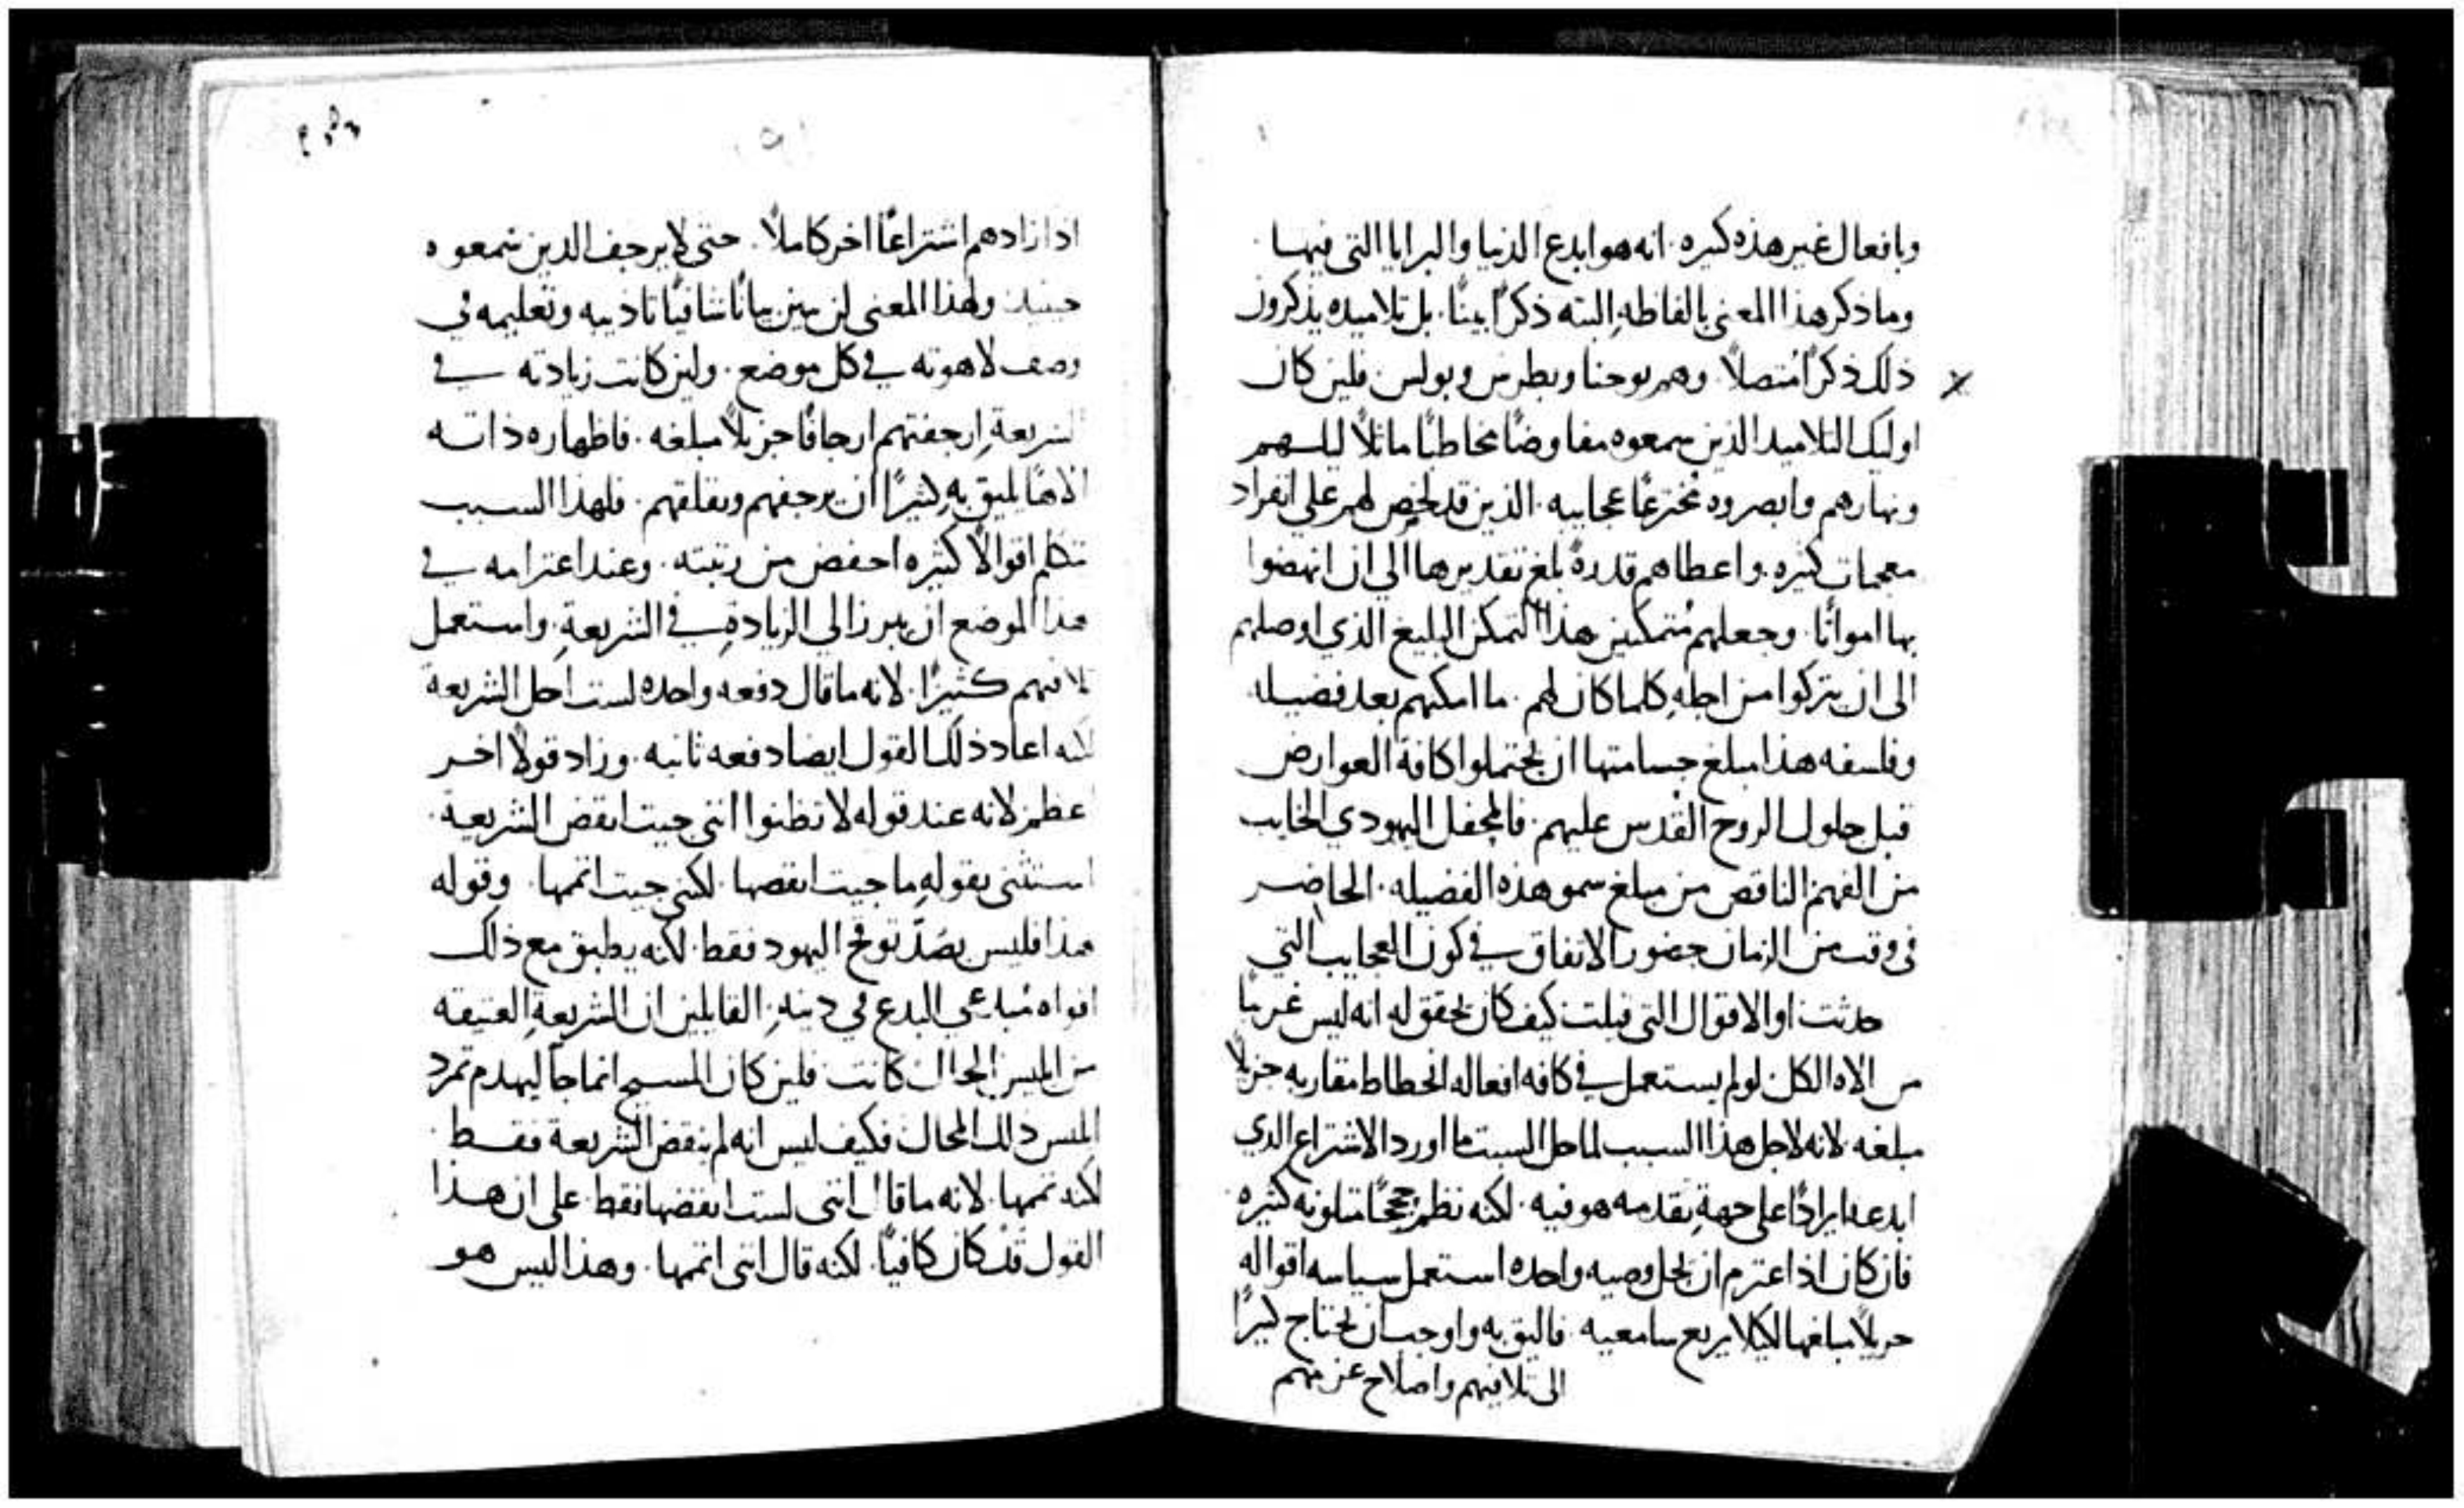 وبافعال غيرهذه كثيره. انه هو ابدع الدنيا والبرايا التي فيها
وما ذكر هذا المعنى بالفاظه البته ذكرًا بينًا. بل تلاميده يذكرون
ذلك ذكرًا متصلاً. وهم يوحنا وبطرس وبولس. فلين كان
اوليك التلاميد الذين سمعوه مفاوضًا مخاطبًا ماثلاً ليلهم
ونهارهم وابصروه مخترعًا عجايبه. الذين قد لخص لهم على انفراد
معجبات كثيره. واعطاهم قدرة بلغ تقديرها الي ان انهضوا
بها امواتًا. وجعلهم متمكنين هذا التمكن البليغ الذي اوصلهم
الى ان يتركوا من اجله كلما كان لهم. ما امكنهم بعد فضيله
وفلسفه هذا مبلغ جسامتها ان يحتملوا كافة العوارض
قبل حلول الروح القدس عليهم. فالمحفل اليهودي الخايب
من الفهم الناقص من مبلغ سمو هذه الفضيله. الحاضر
في وقت من الزمان حضور الاتفاق في كون العجايب التي
حدثت او الاقوال التي قيلت كيف كان تحقق له انه ليس غريبًا
من الاه الكل لو لم يستعمل في كافه افعاله انحطاط مقاربه جزيلاً
مبلغه. لانه لاجل هذا السبب لما حل السبت ما اورد الاشتراع الدي
ابدعه ايرادًا على جهة تقدمه هو فيه. لكنه نظم حججًا متلونه كثيره
فان كان اذ اعتزم ان يحل وصيه واحده استعمل سياسه اقواله
جزيلاً مبلغها لكيلا يريع سامعيه. فاليق به واوجب ان يحتاج كثيرًا
الى تلافيهم واصلاح عزمهم
اذا زادهم اشتراعًا اخر كاملاً. حتى لا يرجف الدين سمعوه
حينيذ. ولهذا المعنى لن يبين بيانًا شافيًا تاديبه وتعليمه في
وصف لاهوته في كل موضع. ولين كانت زيادته في
الشريعة ارجفتهم ارجافًا جزيلاً مبلغه. فاظهاره ذاته
الاهًا يليق به كثيرًا ان يرجفهم ويقلقهم. فلهذا السبب
تكلم اقوالاً كثيره احفض من رتبته. وعند اعتزامه في
هذا الموضع ان يبرز الي الزيادة في الشريعة. واستعمل
تلافيهم كثيرًا. لانه ما قال دفعه واحده لست احل الشريعة
لكنه اعاد ذلك القول ايضا دفعه ثانيه. وزاد قولاً اخر
اعظم لانه عند قوله لا تظنوا انني جيت انقض الشريعة.
استثنى بقوله ما جيت انقضها. لكني جيت اتممها. وقوله
هذا فليس يصد توقح اليهود فقط. لكنه يطبق مع ذلك
افواه مبدعي البدع في دينه. القايلين ان الشريعة العتيقه
من ابليس المحال كانت. فلين كان المسيح انما جا ليهدم تمرد
ابليس ذلك المحال فكيف ليس انه لم ينقض الشريعة فقط.
لكنه تممها. لانه ما قال انني لست انقضها فقط. على ان هذا
القول قد كان كافيًا. لكنه قال انني اتممها. وهذا ليس هو